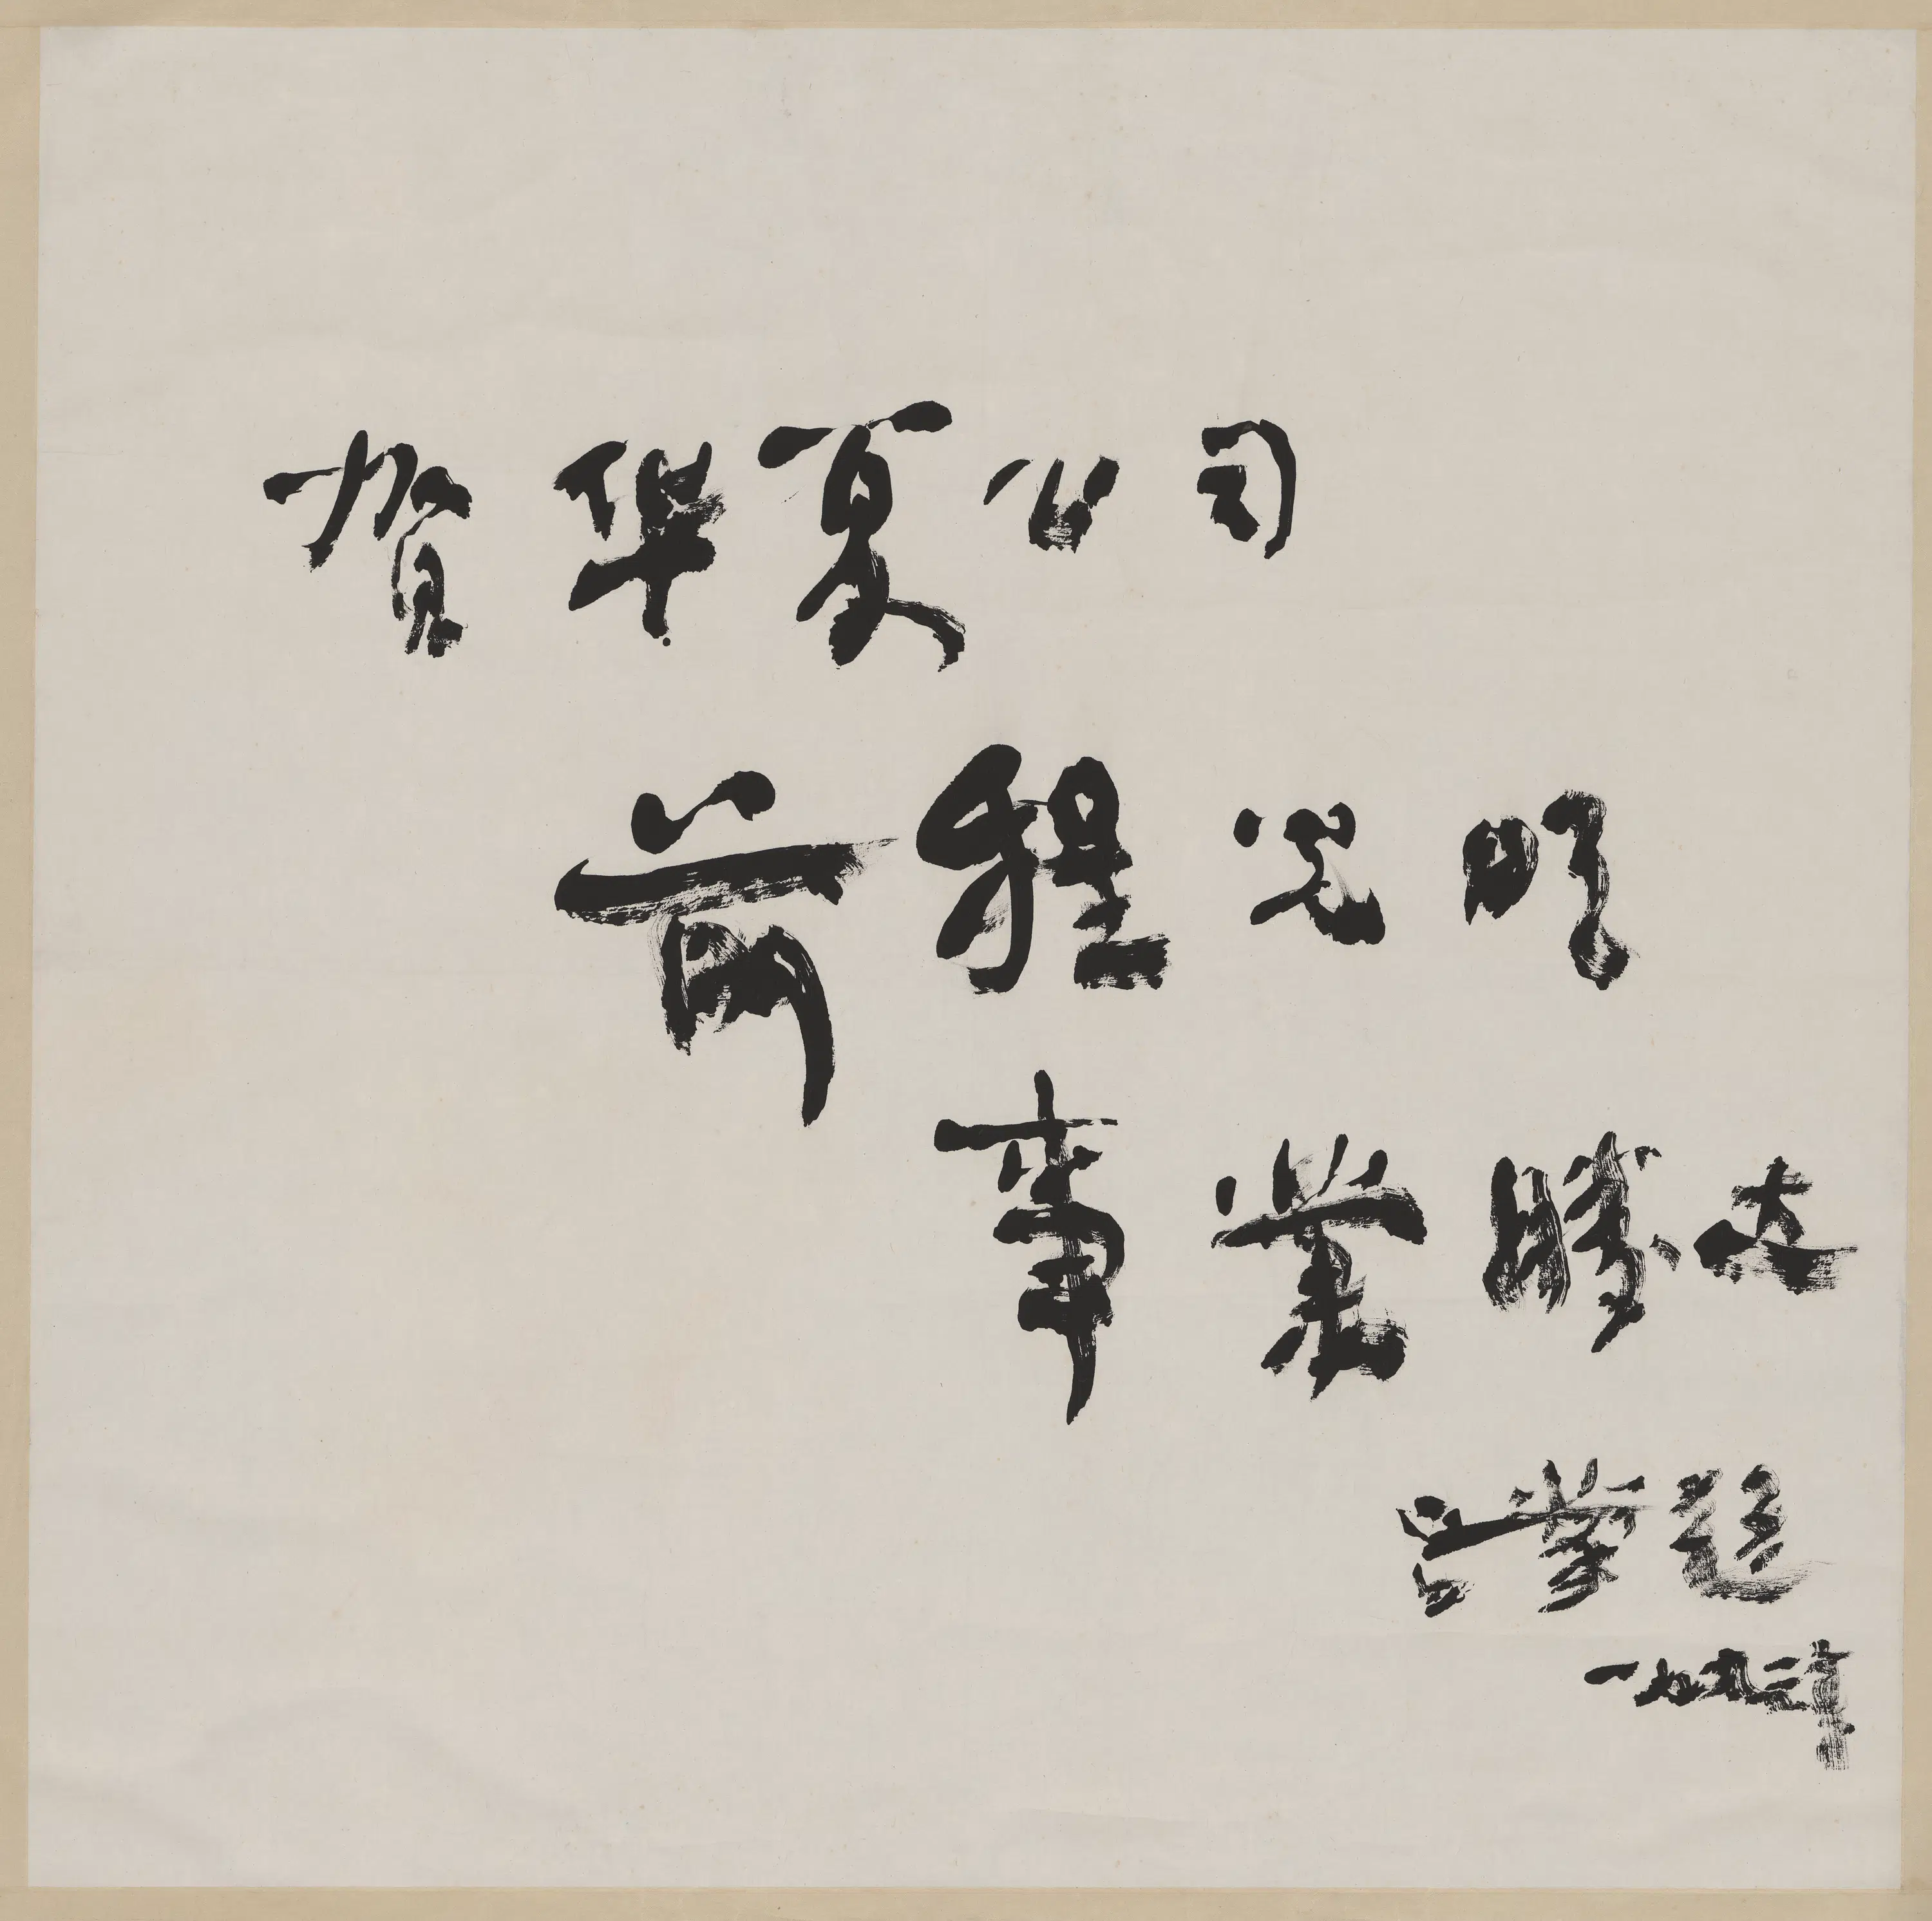 贺华夏公司
前程光明
事業腾达
吕蒙题
一九九三年